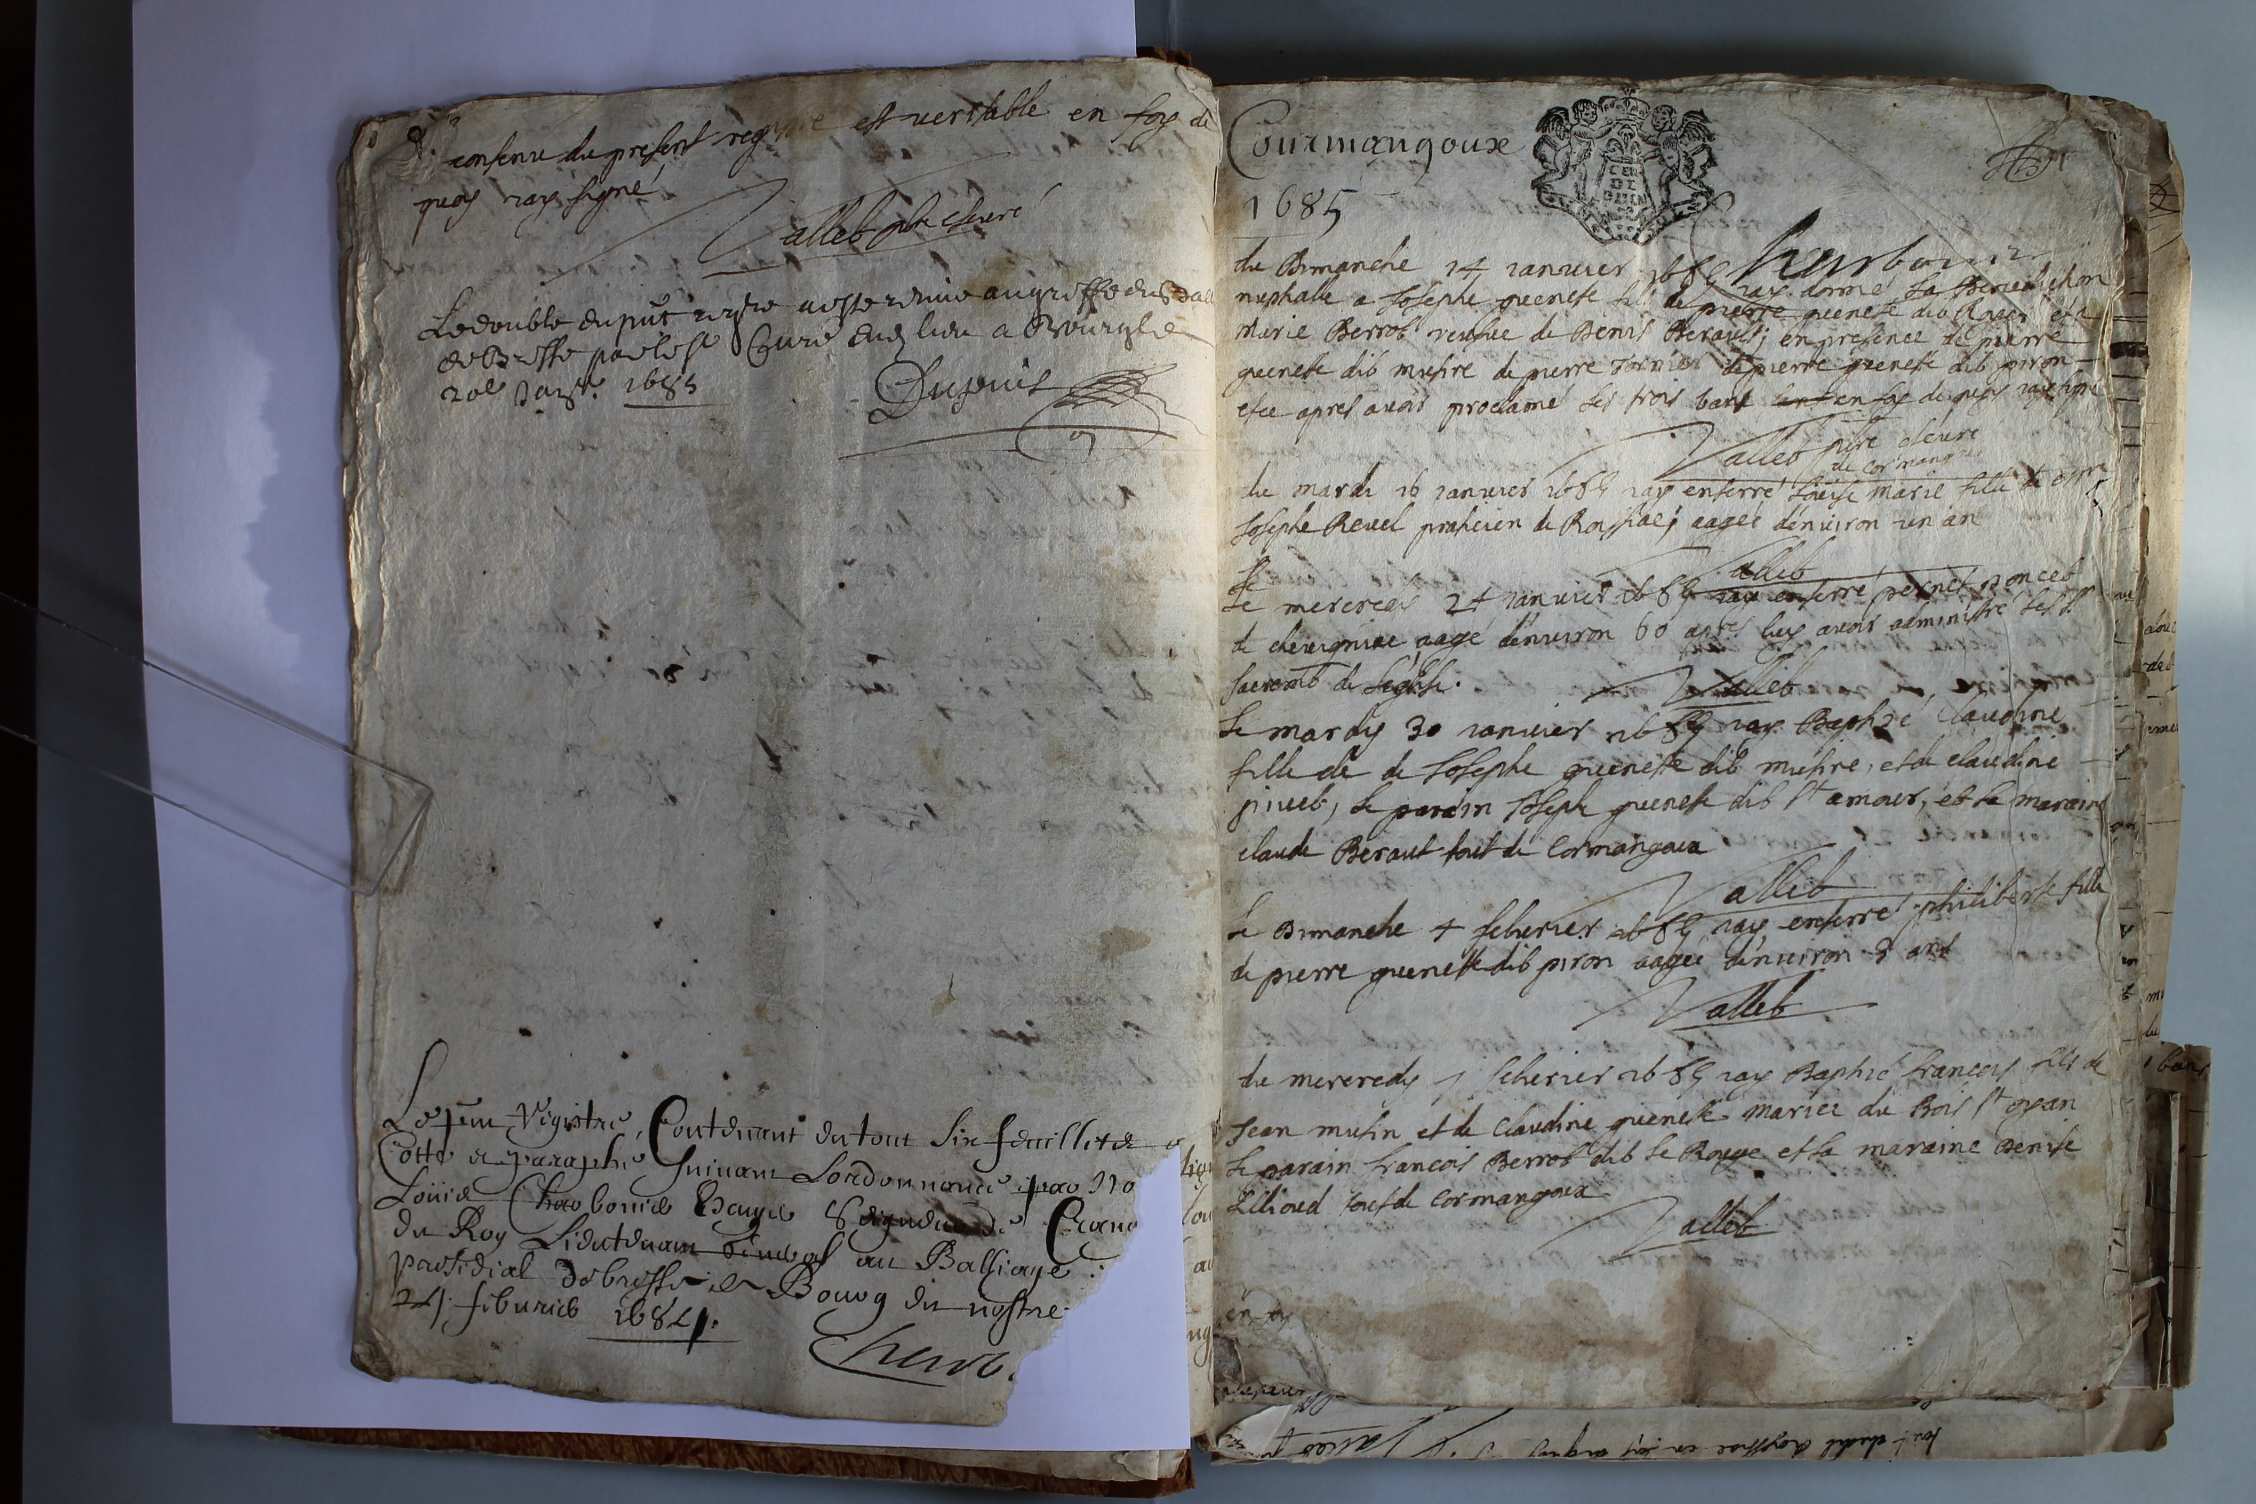 contenu du present registre est veritable en foy de
quoy iay signé
Vallet pbre cheuré
Le double du pnt regre a esté remis au greffe du Ball
de Bresse par le sr Curé dud lieu a Bourg le
20e Janr. 1685
Dupuis
Le pnt Registre, Contenant en tout six feuillets a
Cotte et paraphé suiuant Lordonnance par No
Louis Charbonnier Seigneur de Crang
du Roy Lieutenant General au Balliage
presidial de bresse et Bourg du nostre
24 feburier 1684.
Charb.
Courmangoux
1685
Charbonnier
du Dimanche 14 ianuier 1685 iay donné la Benediction
nuptiale a Josephe guenete fils de pierre guenete dit Rouer et a
Marie Berrod veufue de Denis Beraud; en presence de pierre
guenete dit mutire de pierre Tornier de pierre guenete dit piron
et ce apres auoir proclamé les trois bans en foy de quoy iay signé
Vallet pbre cheuré
de Cormangoux
du mardi 16 ianuier 1685 iay enterré Louise Marie fille de
Josephe Reuel praticien de Roissiac; aagée denuiron un an
Vallet
Le
Le mercredy 24 ianuier 1685 iay enterré pernet poncet
de cheuignac aagé denuiron 60 apres luy auoir administré les sts
sacremts de leglise.
Vallet
Le mardy 30 ianuier 1685 iay Baptizé Claudine
fille de de Josephe guenette dit mutire, et de claudine
piuet, le parain Joseph guenete dit st amour, et la maraine
claude Beraut tout de Cormangoux
Vallet
Le Dimanche 4 feburier 1685 iay enterré philiberte fille
de pierre guenette dit piron aagée denuiron 8 ans
Vallet
du mercredy 7 feburier 1685 iay Baptizé francois fils de
Jean mutin et de Claudine guenete mariez du Bois st oyan
le parain francois Berrod dit le Rouge et la maraine Denise
tout de Cormangoux
Vallet